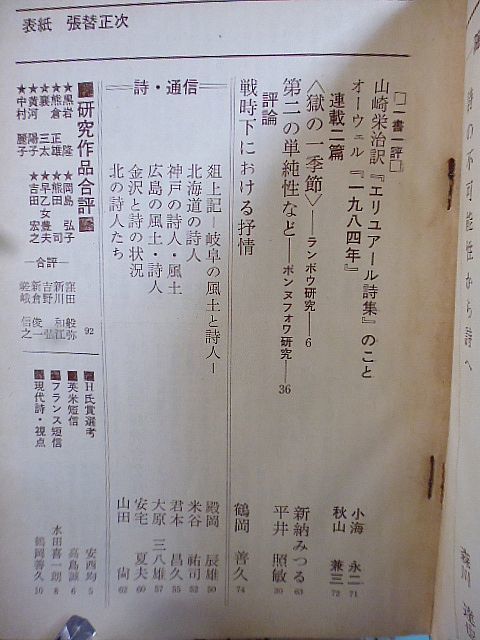 詩の不可能性から詩へ
□一書一評□
山崎栄治訳『エリュアール詩集』のこと
小海 永二 71
オーウェル『一九八四年』
秋山 兼三 72
連載二篇
〈獄の一季節〉――ランボウ研究―6
新納みつる 63
第二の単純性など――ボンヌフォワ研究――36
平井 照敏 30
評論
戦時下における抒情
鶴岡 善久 74
詩・通信
俎上記―岐阜の風土と詩人―
殿岡 辰雄 50
北海道の詩人
米谷 祐司 52
神戸の詩人・風土
君本 昌久 55
広島の風土・詩人
大原 三八雄 57
金沢と詩の状況
安宅 夏夫 60
北の詩人たち
山田 尚 62
研究作品合評
★黒岩 隆
★熊倉 正雄
★襄 三太
★黄河 陽子
★中村 麗子
★岡島 弘子
★熊田 司
★早乙女 豊夫
★吉田 宏之
―合評―
窪田 般弥
新川 和江
吉野 弘
新倉 俊一
嵯峨 信之
92
H氏賞選考
安西均 5
英米短信
高島誠 6
フランス短信
水田喜一朗 8
現代詩・視点
鶴岡善久 10
表紙 張替正次